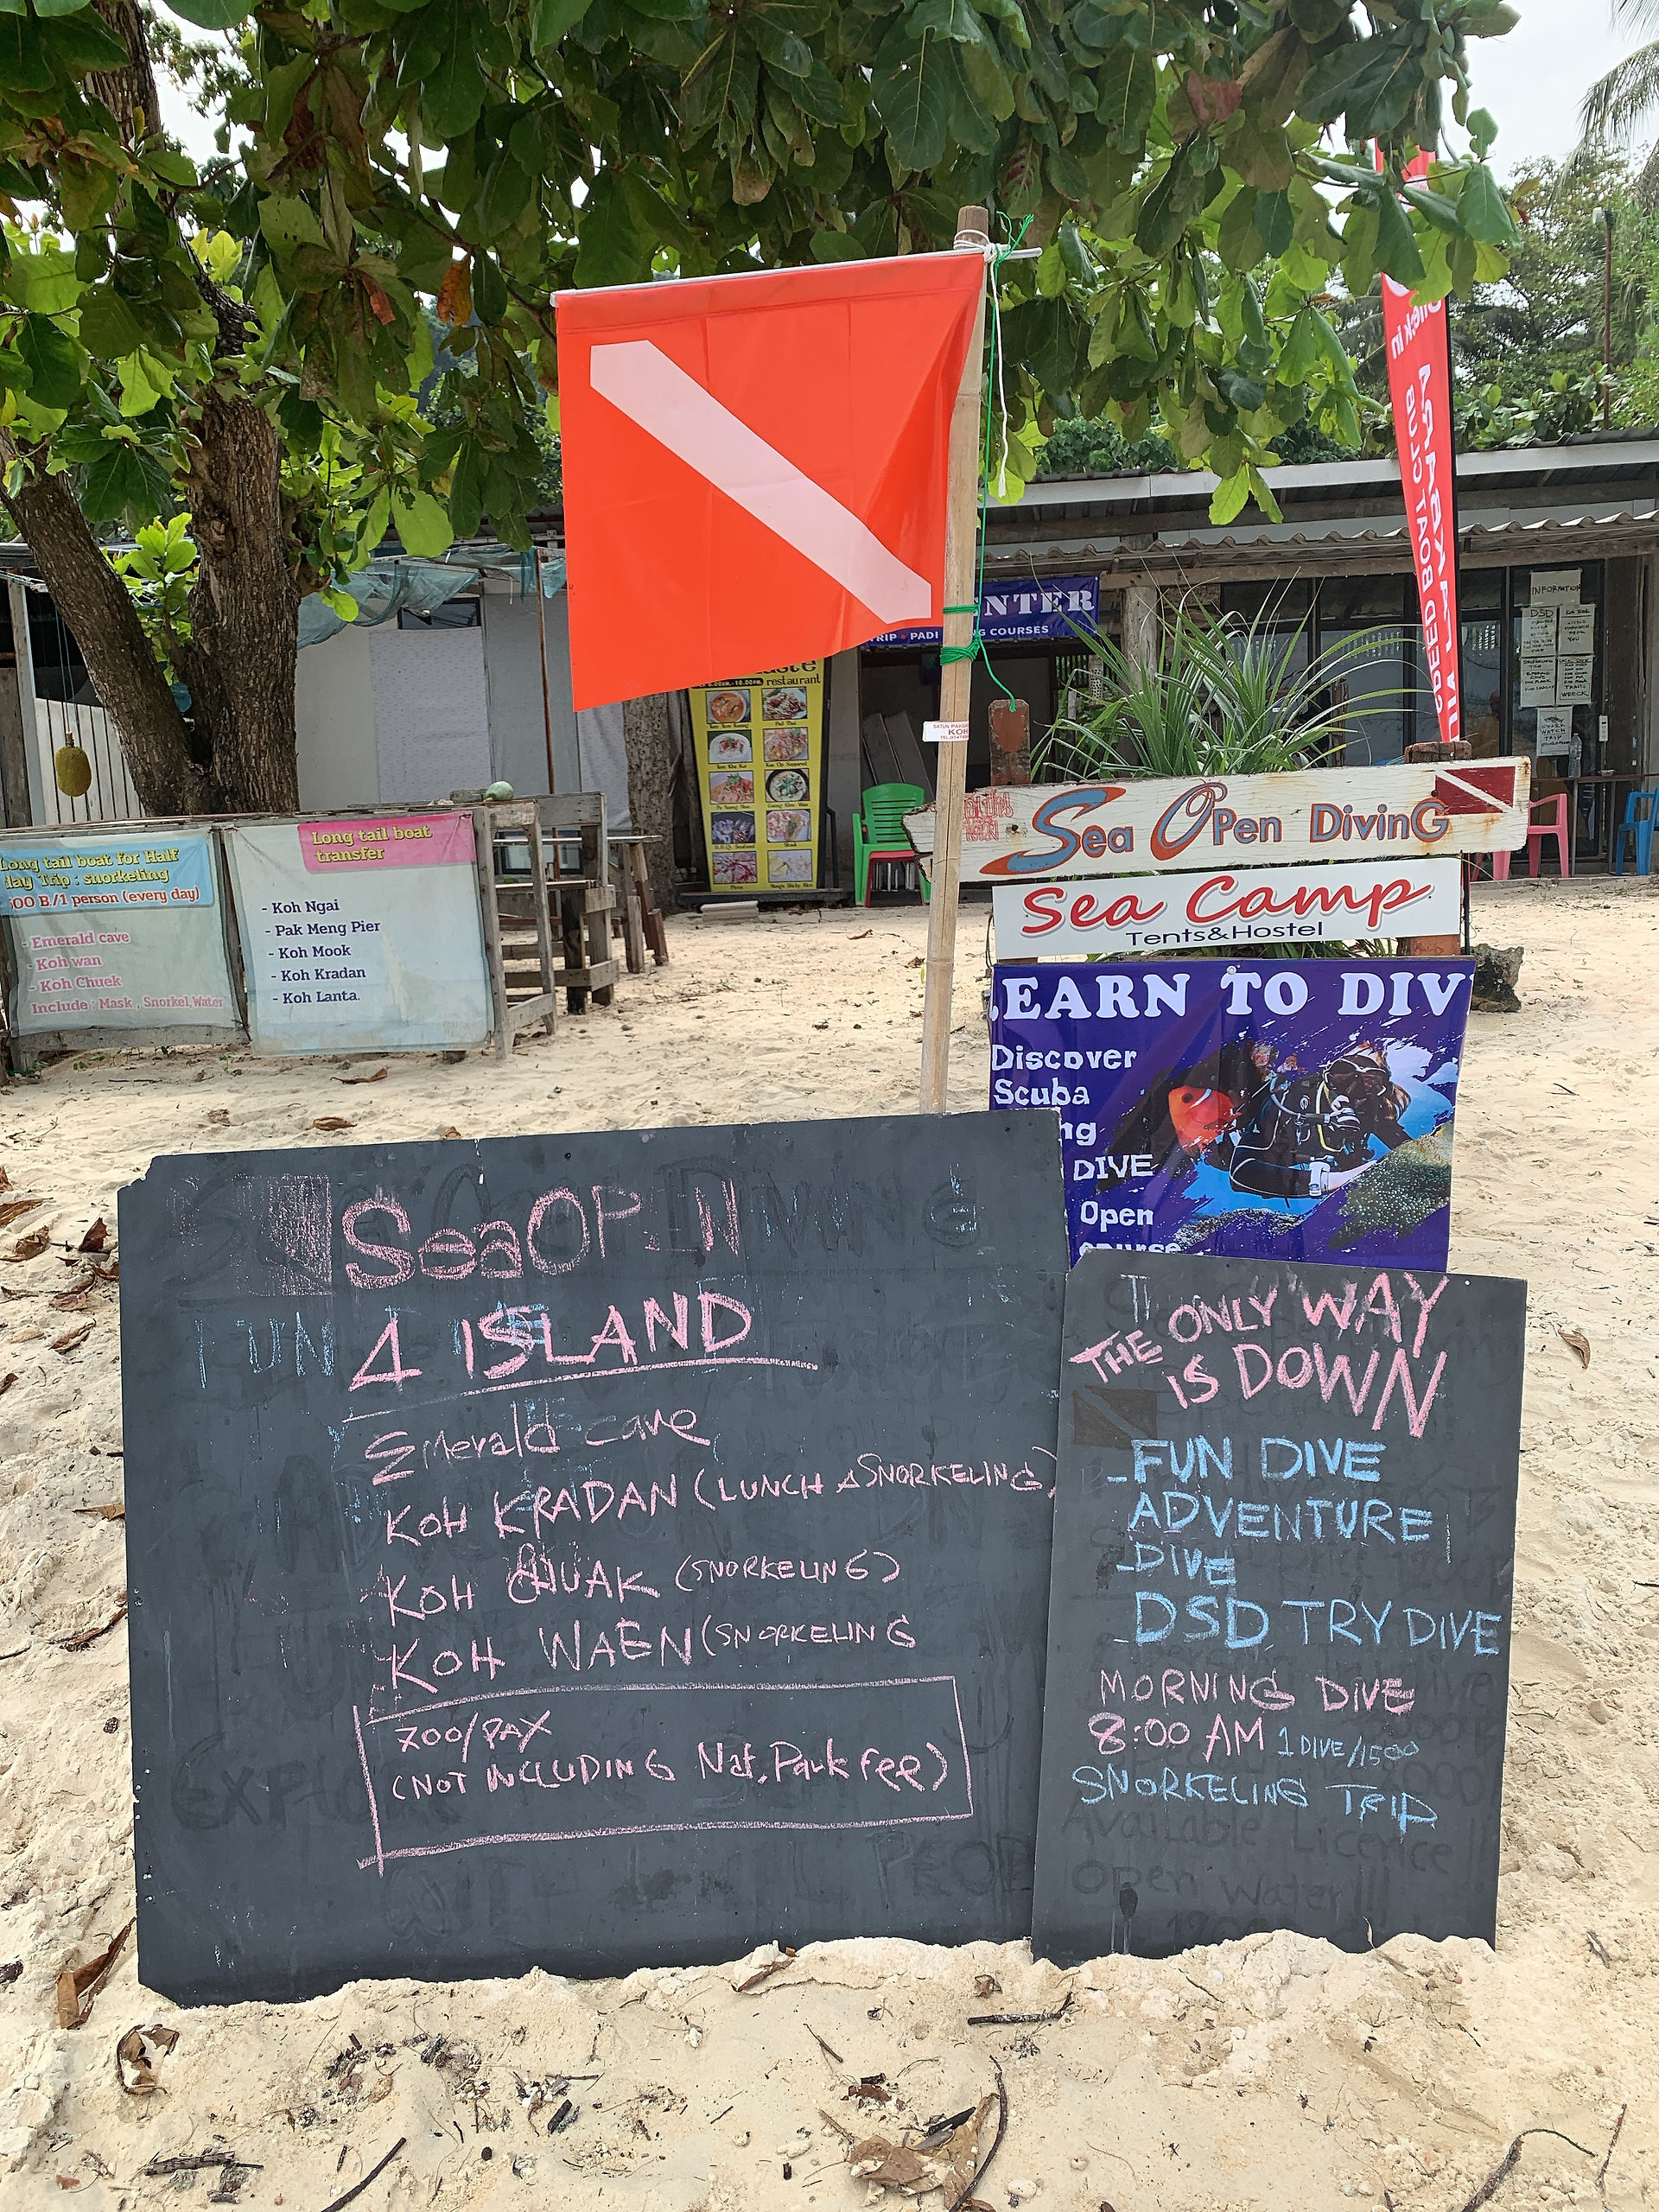 Check in
SPEED BOAT CLUB
ENTER
TRIP · PADI
NG COURSES
INFORMATION
DSD
restaurant
8.00AM.-10.00PM.
Pad Thai
KOH
Sea Open Diving
Sea Camp
Tents&Hostel
Long tail boat for Half
day Trip : snorkeling
00 B./1 person (every day)
- Emerald cave
- Koh wan
- Koh Chuek
Include : Mask , Snorkel,Water
Long tail boat
transfer
- Koh Ngai
- Pak Meng Pier
- Koh Mook
- Koh Kradan
- Koh Lanta.
EARN TO DIV
Discover
Scuba
ng
DIVE
Open
course
SeaOPEN
FUN
4 ISLAND
Emerald cave
KOH KRADAN (LUNCH & SNORKELING)
KOH CHUAK (SNORKELING)
KOH WAEN (SNORKELING
700/PAX
(NOT INCLUDING Nat. Park fee)
THE ONLY WAY
IS DOWN
- FUN DIVE
ADVENTURE
- DIVE
- DSD TRY DIVE
MORNING DIVE
8:00 AM 1 DIVE/1500
SNORKELING TRIP
Available Licence !!
Open Water!!!